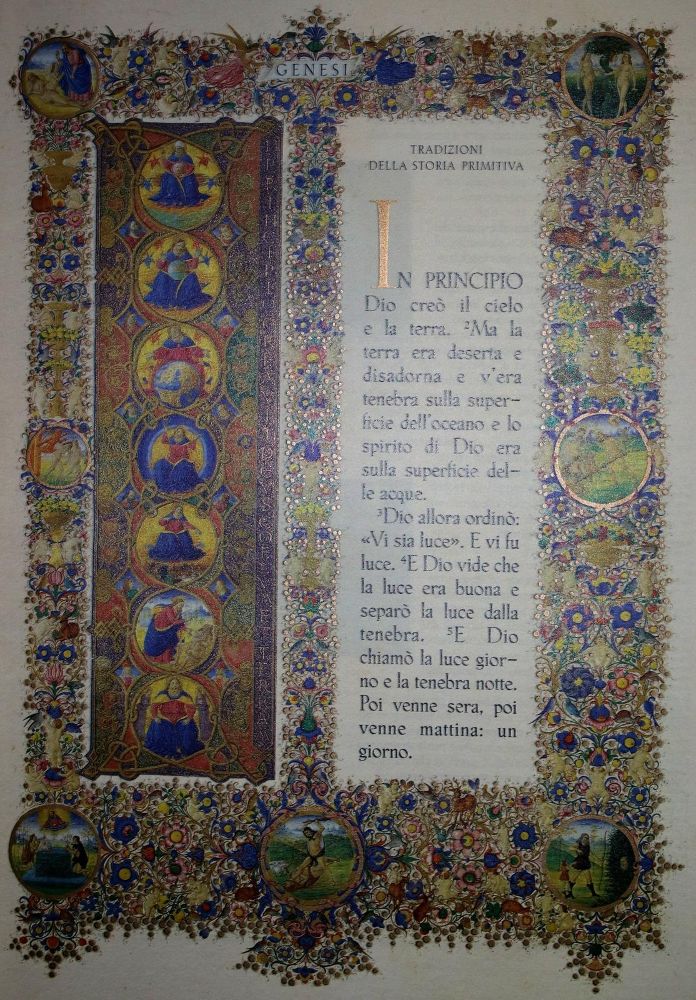 GENESI
TRADIZIONI
DELLA STORIA PRIMITIVA
IN PRINCIPIO
Dio creò il cielo
e la terra. ²Ma la
terra era deserta e
disadorna e v'era
tenebra sulla super-
ficie dell'oceano e lo
spirito di Dio era
sulla superficie del-
le acque.
³Dio allora ordinò:
«Vi sia luce». E vi fu
luce. ⁴E Dio vide che
la luce era buona e
separò la luce dalla
tenebra. ⁵E Dio
chiamò la luce gior-
no e la tenebra notte.
Poi venne sera, poi
venne mattina: un
giorno.